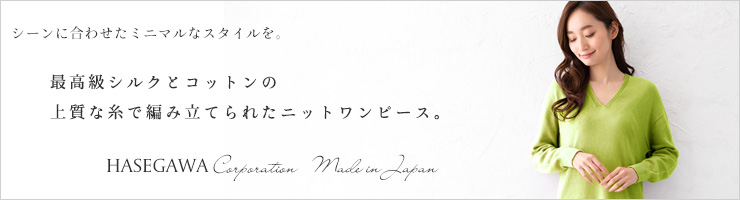 シーンに合わせたミニマルなスタイルを。
最高級シルクとコットンの
上質な糸で編み立てられたニットワンピース。
HASEGAWA Corporation Made in Japan